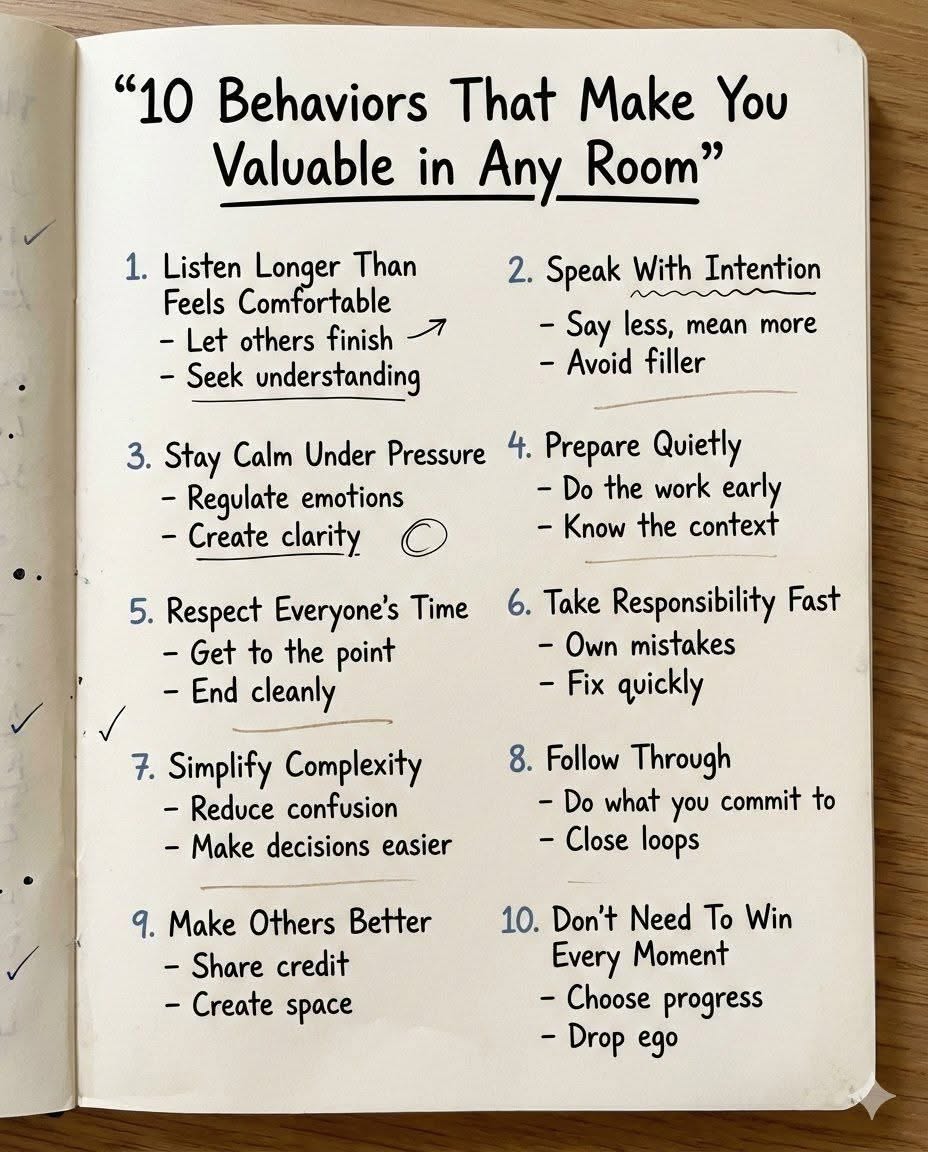 “10 Behaviors That Make You
Valuable in Any Room”
1. Listen Longer Than
Feels Comfortable
– Let others finish
– Seek understanding
2. Speak With Intention
– Say less, mean more
– Avoid filler
3. Stay Calm Under Pressure
– Regulate emotions
– Create clarity
4. Prepare Quietly
– Do the work early
– Know the context
5. Respect Everyone’s Time
– Get to the point
– End cleanly
6. Take Responsibility Fast
– Own mistakes
– Fix quickly
7. Simplify Complexity
– Reduce confusion
– Make decisions easier
8. Follow Through
– Do what you commit to
– Close loops
9. Make Others Better
– Share credit
– Create space
10. Don’t Need To Win
Every Moment
– Choose progress
– Drop ego